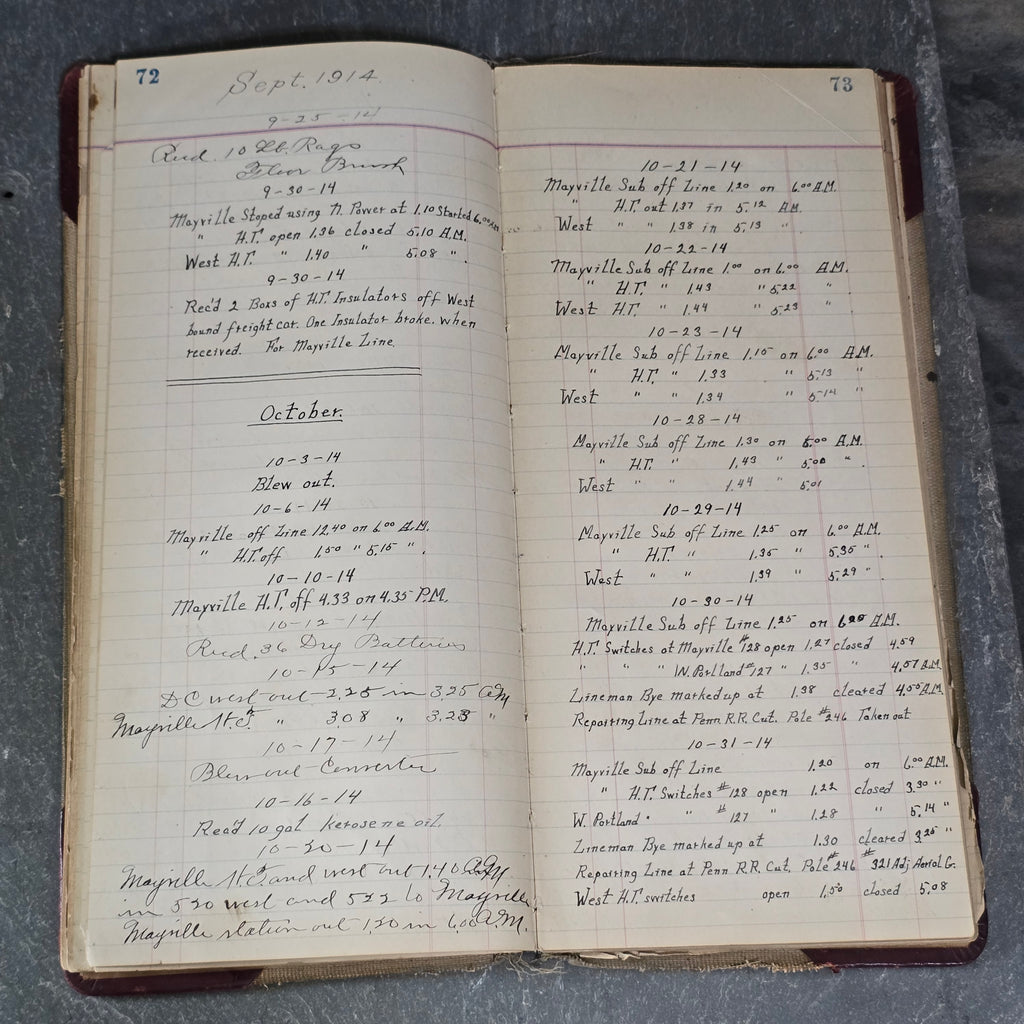 72
Sept. 1914
9-25-14
Recd. 10 Lb. Rags
Floor Brush
9-30-14
Mayville Stoped using N. Power at 1.10 Started 6.00 AM
" H.T. open 1.36 closed 5.10 A.M.
West H.T. " 1.40 " 5.08 " .
9-30-14
Rec'd 2 Boxs of H.T. Insulators off West
bound freight car. One Insulator broke. when
received. For Mayville Line.
October.
10-3-14
Blew out.
10-6-14
Mayville off Line 12.40 on 6.00 A.M.
" H.T. off 1.50 " 5.15 " .
10-10-14
Mayville H.T. off 4.33 on 4.35 P.M.
10-12-14
Recd. 36 Dry Batteries
10-15-14
D C west out - 2.25 in 325 AM
Mayville H.T. " 308 " 3.23 "
10-17-14
Blew out Converter
10-16-14
Rec'd 10 gal kerosene oil.
10-20-14
Mayville H.T. and west out 1.40 A.M.
in 520 west and 522 to Mayville
Mayville station out 1.20 in 6.00 A.M.
73
10-21-14
Mayville Sub off Line 1.20 on 6.00 A.M.
" H.T. out 1.37 in 5.12 AM.
West " " 1.38 in 5.13 "
10-22-14
Mayville Sub off Line 1.00 on 6.00 A.M.
" H.T. " 1.43 " 5.22 "
West H.T. " 1.44 " 5.23 "
10-23-14
Mayville Sub off Line 1.15 on 6.00 A.M.
" H.T. " 1.33 " 5.13 "
West " " 1.34 " 5.14 "
10-28-14
Mayville Sub off Line 1.30 on 6.00 A.M.
" H.T. " 1.43 " 5.00 "
West " " 1.44 " 5.01
10-29-14
Mayville Sub off Line 1.25 on 6.00 A.M.
" H.T. " 1.35 " 5.30 " .
West " " 1.39 " 5.29 " .
10-30-14
Mayville Sub off Line 1.25 on A.M.
H.T. Switches at Mayville #128 open 1.27 closed 4.59
" " " W. Portland #127 " 1.35 " 4.57 A.M.
Lineman Bye marked up at 1.38 cleared 4.55 A.M.
Repairing Line at Penn R.R. Cut. Pole #246 Taken out
10-31-14
Mayville Sub off Line 1.20 on 6.00 A.M.
" H.T. Switches #128 open 1.22 closed 3.30 "
W. Portland " " #127 1.28 " 5.14 "
Lineman Bye marked up at 1.30 cleared 3.25 "
Repairing Line at Penn R.R. Cut. Pole #246 #321 Adj Aerial G.
West H.T. switches open 1.50 closed 5.08